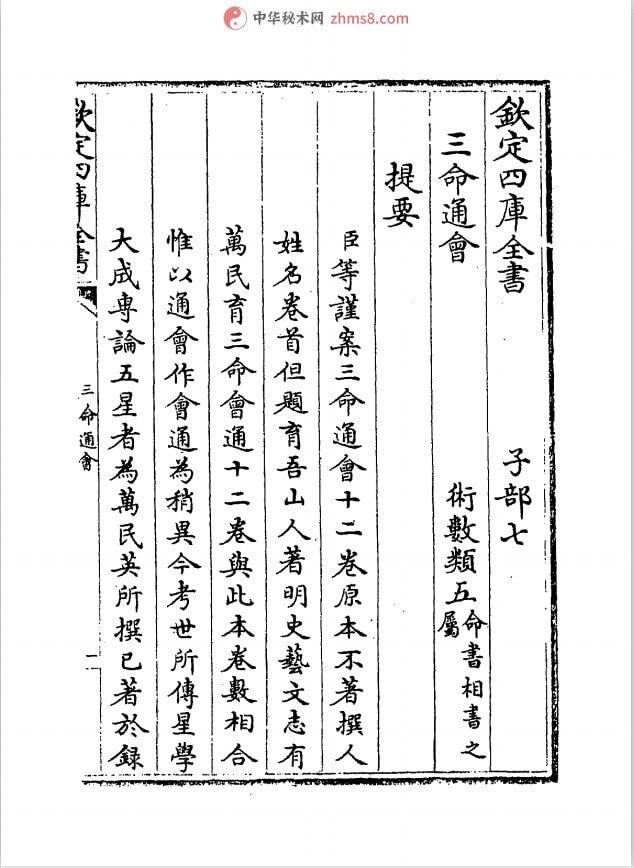 中华秘术网 zhms8.com
欽定四庫全書 子部七
三命通會 術數類五命書相書之屬
提要
臣等謹案三命通會十二卷原本不著撰人
姓名卷首但題育吾山人著明史藝文志有
萬民育三命會通十二卷與此本卷數相合
惟以通會作會通為稍異今考世所傳星學
大成專論五星者為萬民英所撰已著於錄
欽定四庫全書 三命通會 一